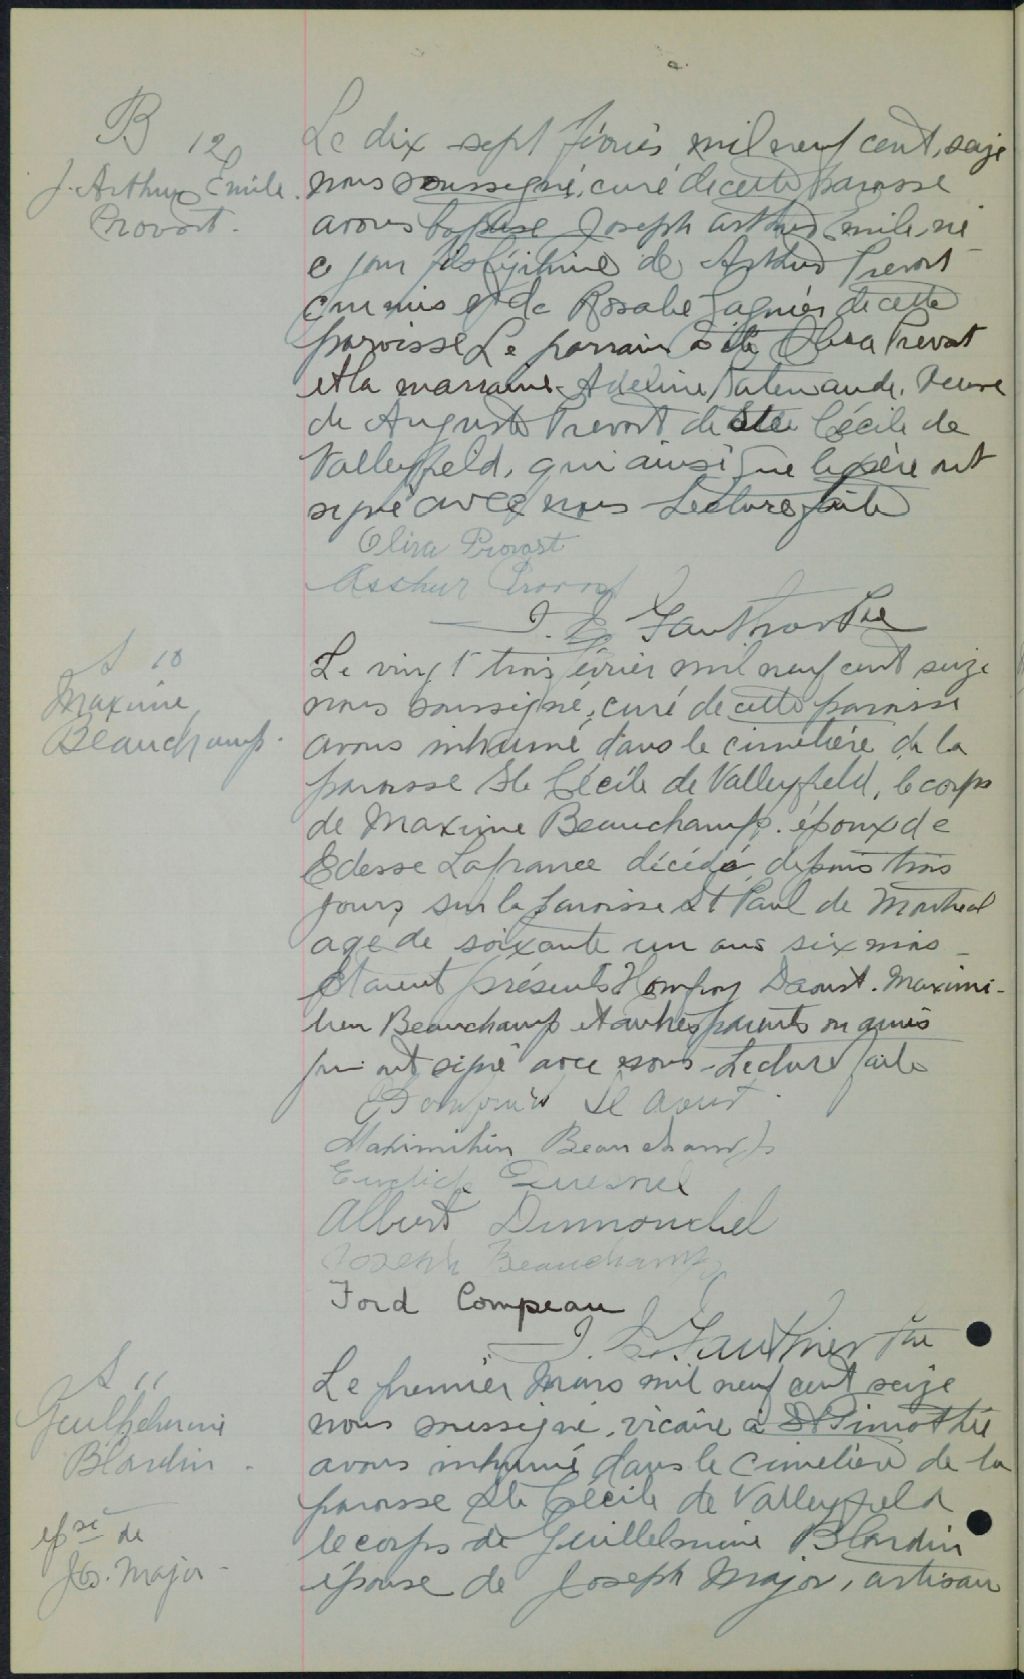 B 12
J. Arthur Emile
Provost.
Le dix sept février mil neuf cent seize
nous soussigné, curé de cette paroisse
avons baptisé Joseph Arthur Emile, né
ce jour fils légitime de Arthur Prevost
commis et de Rosalie Gagnier de cette
paroisse Le parrain a été Oliva Prevost
et la marraine Adeline Patenaude, veuve
de Auguste Prevost de Ste Cécile de
Valleyfield, qui ainsi que le père ont
signé avec nous Lecture faite
Oliva Provost
Arthur Provost
J. E. Gauthier Ptre
S 10
Maxime
Beauchamp.
Le vingt trois février mil neuf cent seize
nous soussigné, curé de cette paroisse
avons inhumé dans le cimetière de la
paroisse Ste Cécile de Valleyfield, le corps
de Maxime Beauchamp. époux de
Edesse Lafrance décédé depuis trois
jours sur la paroisse St Paul de Montreal
agé de soixante un ans six mois
Etaient présents Daoust. Maximi-
lien Beauchamp et autres parents ou amis
qui ont signé avec nous. Lecture faite
Maximilien Beauchamp
Quesnel
Albert Dumouchel
Joseph Beauchamp
Ford Compeau
J. E. Gauthier Ptre
S 11
Guilhelmine
Blondin.
epse de
Jos. Major
Le premier Mars mil neuf cent seize
nous soussigné, vicaire à St Timothée
avons inhumé dans le cimetière de la
paroisse Ste Cécile de Valleyfield
le corps de Guillelmine Blondin
épouse de Joseph Major, artisan